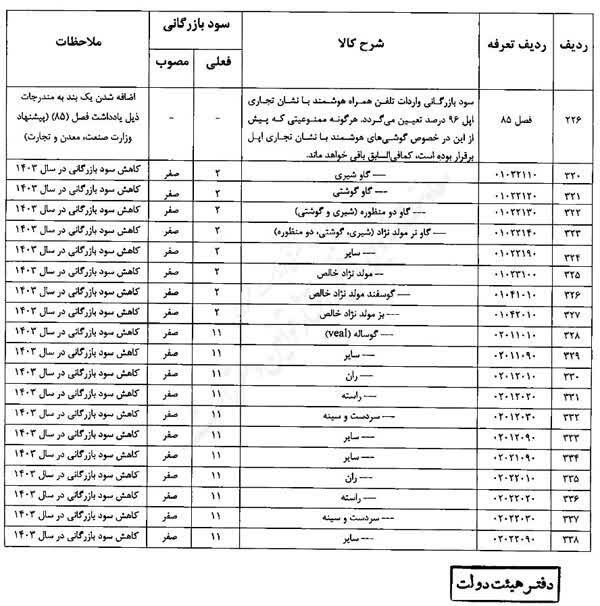 ردیف ردیف تعرفه شرح کالا سود بازرگانی ملاحظات
فعلی مصوب
۲۲۶ فصل ۸۵ سود بازرگانی واردات تلفن همراه هوشمند با نشان تجاری - - اضافه شدن یک بند به مندرجات
اپل ۹۶ درصد تعیین می‌گردد. هرگونه ممنوعیتی که پیش ذیل یادداشت فصل (۸۵) (پیشنهاد
از این در خصوص گوشی‌های هوشمند با نشان تجاری اپل وزارت صنعت، معدن و تجارت)
برقرار بوده است، کمافی‌السابق باقی خواهد ماند.
۳۲۰ ۰۱۰۲۲۱۱۰ --- گاو شیری ۲ صفر کاهش سود بازرگانی در سال ۱۴۰۳
۳۲۱ ۰۱۰۲۲۱۲۰ --- گاو گوشتی ۲ صفر کاهش سود بازرگانی در سال ۱۴۰۳
۳۲۲ ۰۱۰۲۲۱۳۰ --- گاو دو منظوره (شیری و گوشتی) ۲ صفر کاهش سود بازرگانی در سال ۱۴۰۳
۳۲۳ ۰۱۰۲۲۱۴۰ --- گاو نر مولد نژاد (شیری، گوشتی، دو منظوره) ۲ صفر کاهش سود بازرگانی در سال ۱۴۰۳
۳۲۴ ۰۱۰۲۲۱۹۰ --- سایر ۲ صفر کاهش سود بازرگانی در سال ۱۴۰۳
۳۲۵ ۰۱۰۲۳۱۰۰ -- مولد نژاد خالص ۲ صفر کاهش سود بازرگانی در سال ۱۴۰۳
۳۲۶ ۰۱۰۴۱۰۱۰ --- گوسفند مولد نژاد خالص ۲ صفر کاهش سود بازرگانی در سال ۱۴۰۳
۳۲۷ ۰۱۰۴۲۰۱۰ --- بز مولد نژاد خالص ۲ صفر کاهش سود بازرگانی در سال ۱۴۰۳
۳۲۸ ۰۲۰۱۱۰۱۰ --- گوساله (veal) ۱۱ صفر کاهش سود بازرگانی در سال ۱۴۰۳
۳۲۹ ۰۲۰۱۱۰۹۰ --- سایر ۱۱ صفر کاهش سود بازرگانی در سال ۱۴۰۳
۳۳۰ ۰۲۰۱۲۰۱۰ --- ران ۱۱ صفر کاهش سود بازرگانی در سال ۱۴۰۳
۳۳۱ ۰۲۰۱۲۰۲۰ --- راسته ۱۱ صفر کاهش سود بازرگانی در سال ۱۴۰۳
۳۳۲ ۰۲۰۱۲۰۳۰ --- سردست و سینه ۱۱ صفر کاهش سود بازرگانی در سال ۱۴۰۳
۳۳۳ ۰۲۰۱۲۰۹۰ --- سایر ۱۱ صفر کاهش سود بازرگانی در سال ۱۴۰۳
۳۳۴ ۰۲۰۲۱۰۹۰ --- سایر ۱۱ صفر کاهش سود بازرگانی در سال ۱۴۰۳
۳۳۵ ۰۲۰۲۲۰۱۰ --- ران ۱۱ صفر کاهش سود بازرگانی در سال ۱۴۰۳
۳۳۶ ۰۲۰۲۲۰۲۰ --- راسته ۱۱ صفر کاهش سود بازرگانی در سال ۱۴۰۳
۳۳۷ ۰۲۰۲۲۰۳۰ --- سردست و سینه ۱۱ صفر کاهش سود بازرگانی در سال ۱۴۰۳
۳۳۸ ۰۲۰۲۲۰۹۰ --- سایر ۱۱ صفر کاهش سود بازرگانی در سال ۱۴۰۳
دفتر هیئت دولت